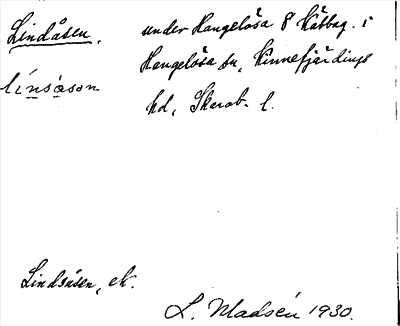 Lindåsen. under Hangelösa 8 Kåtbog. i
linsåsan Hangelösa sn, Kinnefjärdings
hd, Skarab. l.
Lindåsen, ek.
L. Madsén 1930.